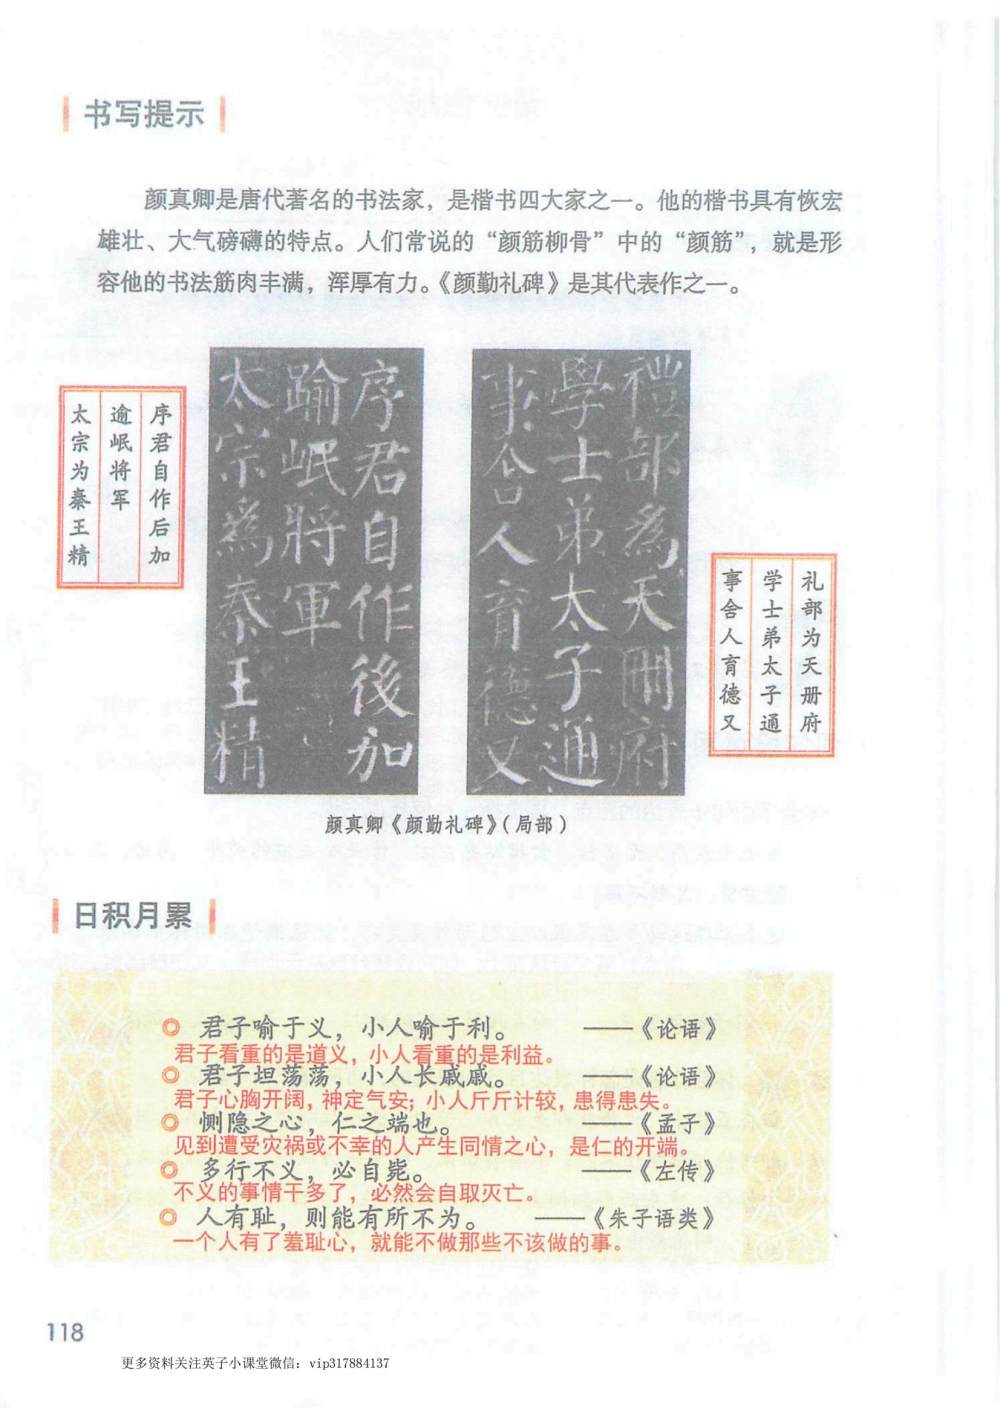 书写提示
颜真卿是唐代著名的书法家，是楷书四大家之一。他的楷书具有恢宏
雄壮、大气磅礴的特点。人们常说的“颜筋柳骨”中的“颜筋”，就是形
容他的书法筋肉丰满，浑厚有力。《颜勤礼碑》是其代表作之一。
序君自作后加
逾岷将军
太宗为秦王精
序君自作後加
踰岷將軍
太宗為秦王精
禮部為天冊府
學士弟太子通
事舍人育德又
礼部为天册府
学士弟太子通
事舍人育德又
颜真卿《颜勤礼碑》（局部）
日积月累
君子喻于义，小人喻于利。 ——《论语》
君子看重的是道义，小人看重的是利益。
君子坦荡荡，小人长戚戚。 ——《论语》
君子心胸开阔，神定气安；小人斤斤计较，患得患失。
恻隐之心，仁之端也。 ——《孟子》
见到遭受灾祸或不幸的人产生同情之心，是仁的开端。
多行不义，必自毙。 ——《左传》
不义的事情干多了，必然会自取灭亡。
人有耻，则能有所不为。 ——《朱子语类》
一个人有了羞耻心，就能不做那些不该做的事。
118
更多资料关注英子小课堂微信：vip317884137